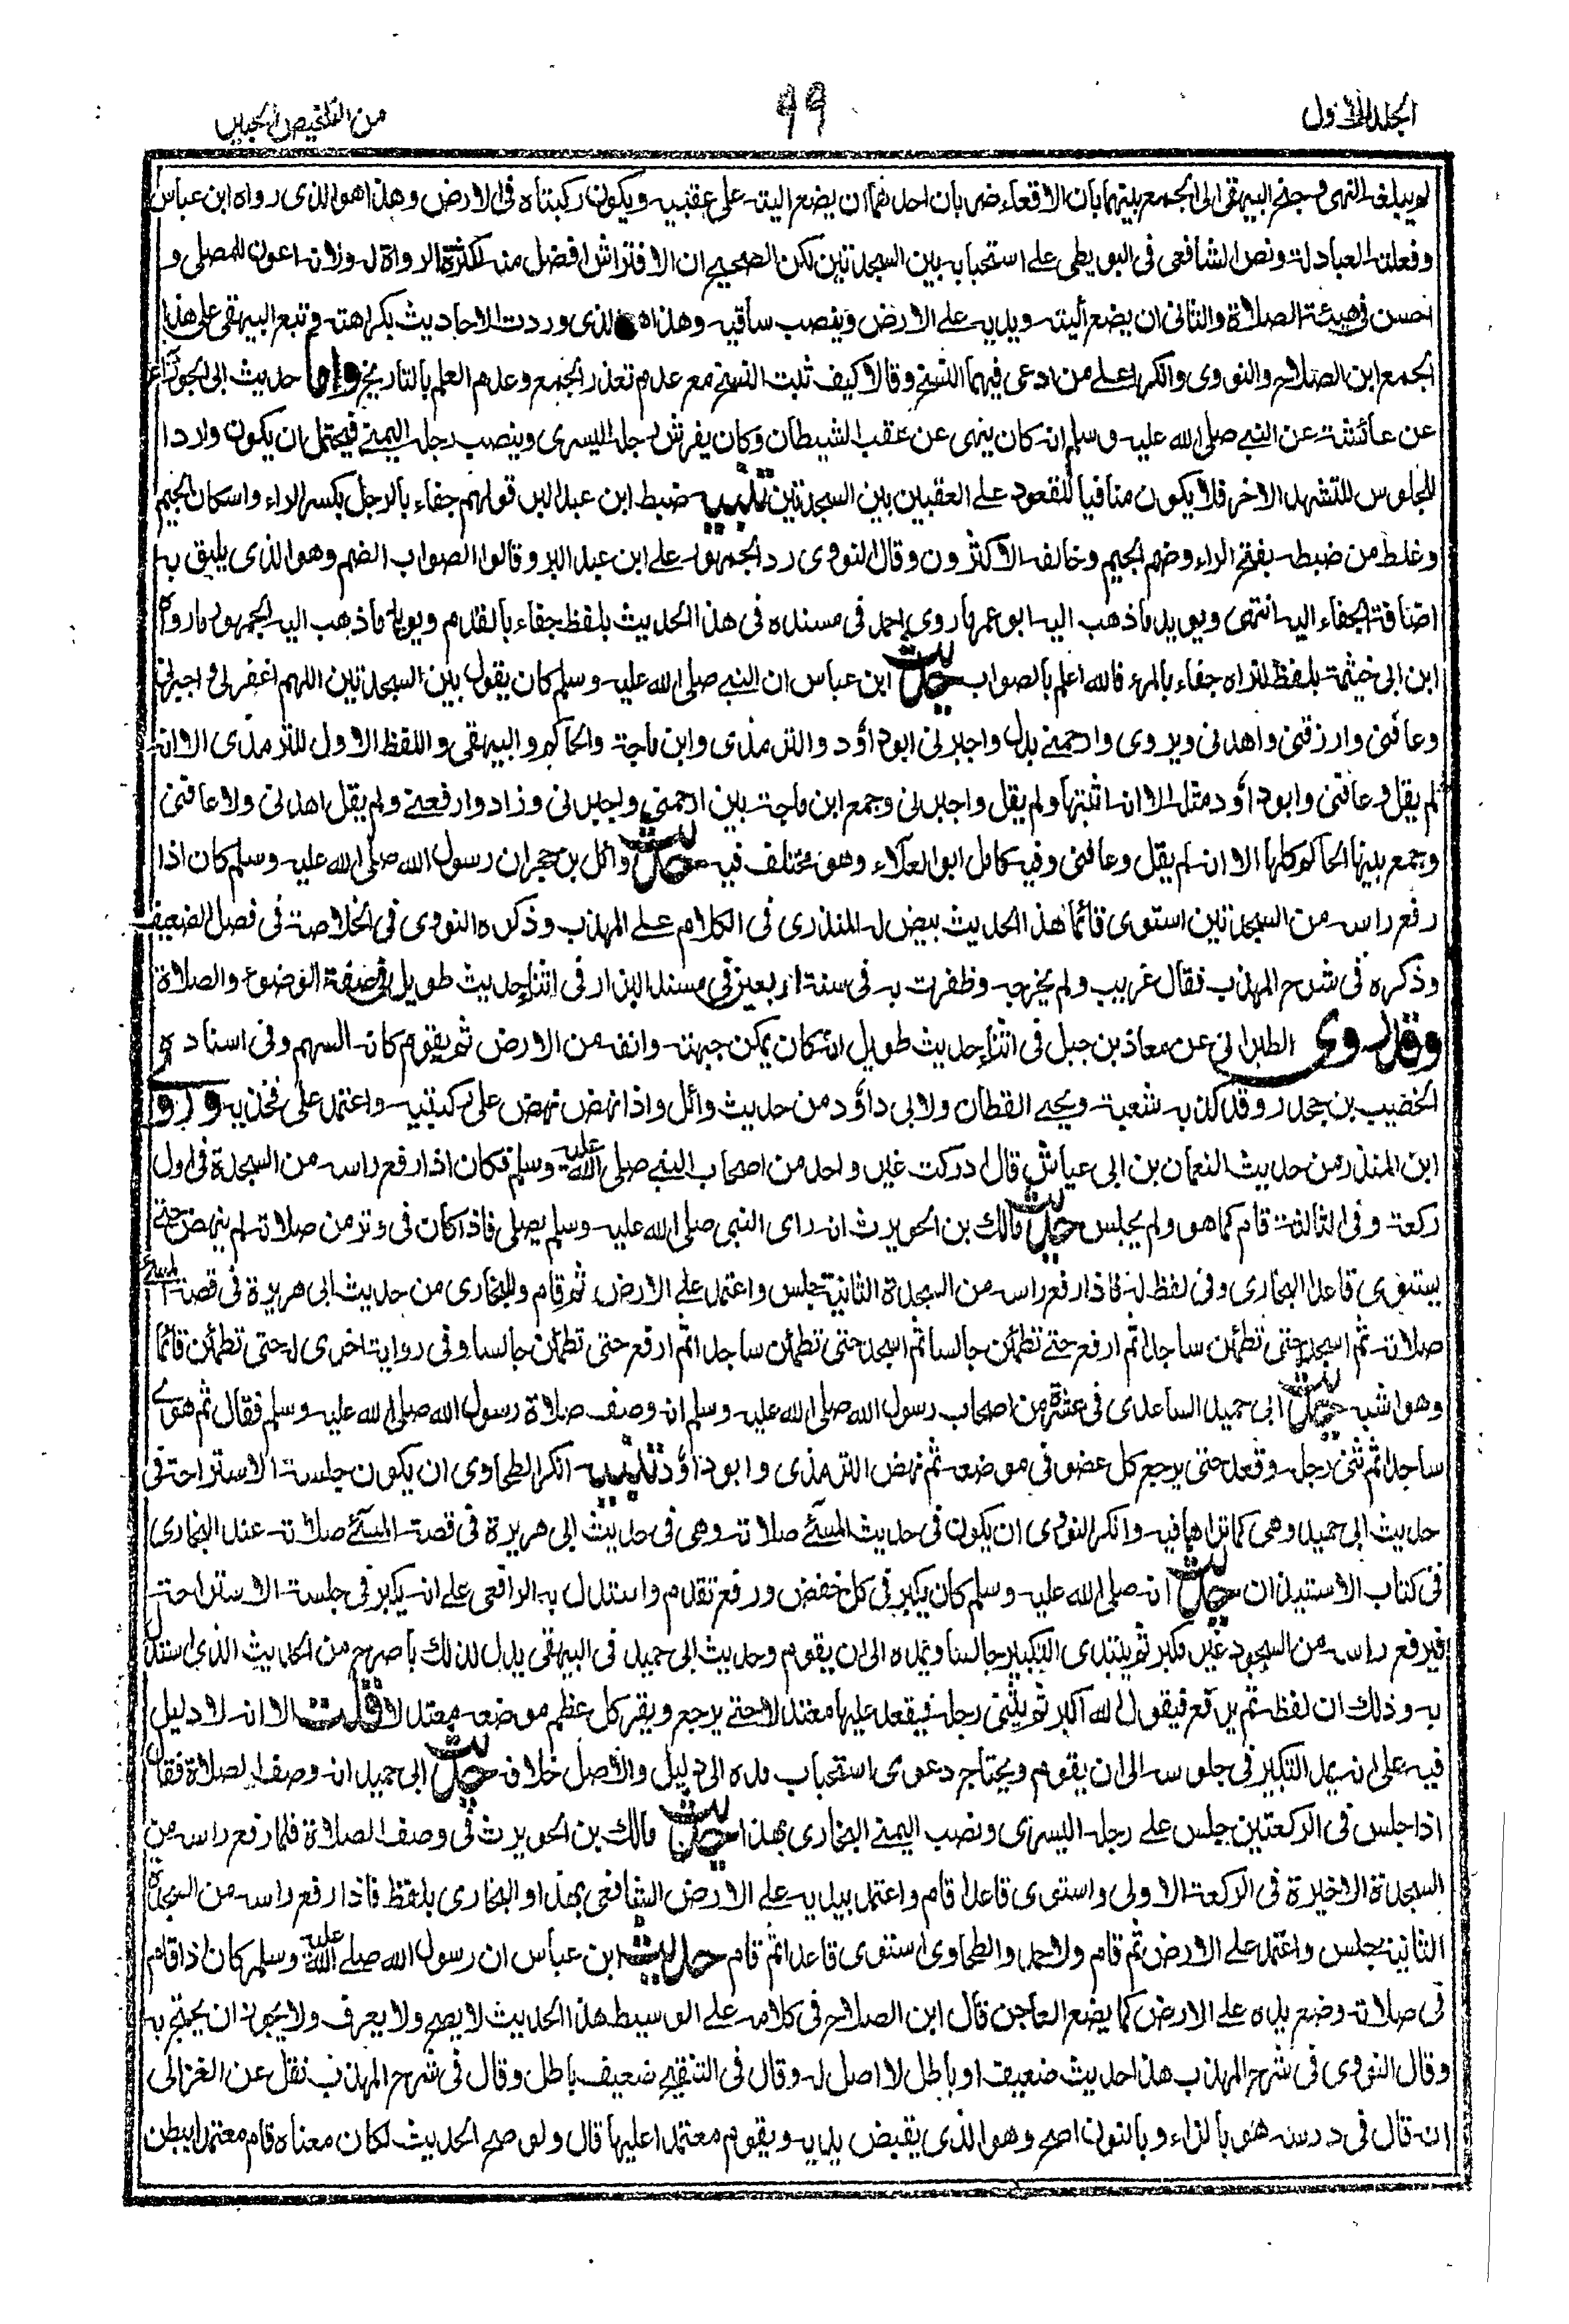 الجلد الاول
99
من التلخيص الحبير
لم يبلغه النهى وجنح البيهقى الى الجمع بينهما بان الاقعاء ضربان احدهما ان يضع اليته على عقبيه ويكون ركبتاه فى الارض وهذا هو الذى رواه ابن عباس
وفعلته العبادلة ونص الشافعى فى البويطى على استحبابه بين السجدتين لكن الصحيح ان الافتراش افضل منه لكثرة الرواة له ولانه اعون للمصلى و
احسن فى هيئة الصلاة والثانى ان يضع أليته ويديه على الارض وينصب ساقيه وهذا هو الذى وردت الاحاديث بكراهته وتبع البيهقى على هذا
الجمع ابن الصلاح والنووى وانكرا على من ادعى فيهما النسخ وقالا كيف ثبت النسخ مع عدم تعذر الجمع وعدم العلم بالتاريخ واما حديث ابى الجوزاء
عن عائشة عن النبى صلى الله عليه وسلم انه كان ينهى عن عقب الشيطان وكان يفرش رجله اليسرى وينصب رجله اليمنى فيحتمل ان يكون واردا
للجلوس للتشهد الاخر فلا يكون منافيا للقعود على العقبين بين السجدتين تنبيه ضبط ابن عبد البر قولهم جفاء بالرجل بكسر الراء واسكان الجيم
وغلط من ضبطه بفتح الراء وضم الجيم وخالفه الاكثرون وقال النووى رد الجمهور على ابن عبد البر وقالوا الصواب الضم وهو الذى يليق به
اضافة الجفاء اليه انتهى ويويد ما ذهب اليه ابو عمر ما روى احمد فى مسنده فى هذا الحديث بلفظ جفاء بالقدم ويويد ما ذهب اليه الجمهور ما رواه
ابن ابى خيثمة بلفظ لنراه جفاء بالمرء فالله اعلم بالصواب حديث ابن عباس ان النبى صلى الله عليه وسلم كان يقول بين السجدتين اللهم اغفر لى و اجبرنى
وعافنى وارزقنى واهدنى ويروى وارحمنى بدل واجبرنى ابو داؤد والترمذى وابن ماجة والحاكم والبيهقى واللفظ الاول للترمذى الا انه
لم يقل وعافنى وابو داؤد مثله الا انه اثبتها ولم يقل واجبرنى وجمع ابن ماجة بين ارحمنى واجبرنى وزاد وارفعنى ولم يقل اهدنى ولا عافنى
وجمع بينها الحاكم كلها الا انه لم يقل وعافنى وفيه كامل ابو العلاء وهو مختلف فيه حديث وائل بن حجر ان رسول الله صلى الله عليه وسلم كان اذا
رفع راسه من السجدتين استوى قائما هذا الحديث بيض له المنذرى فى الكلام على المهذب وذكره النووى فى الخلاصة فى فصل الضعيف
وذكره فى شرح المهذب فقال غريب ولم يخرجه وظفرت به فى سنة اربعين فى مسند البزار فى اثناء حديث طويل فى صفة الوضوء والصلاة
وقد روى الطبرانى عن معاذ بن جبل فى اثناء حديث طويل انه كان يمكن جبهته وانفه من الارض ثم يقوم كانه السهم وفى اسناده
الخصيب بن جحدر وقد كذبه شعبة ويحيى القطان ولابى داؤد من حديث وائل واذا نهض نهض على ركبتيه واعتمد على فخذيه وروى
ابن المنذر من حديث النعمان بن ابى عياش قال ادركت غير واحد من اصحاب النبى صلى الله عليه وسلم فكان اذا رفع راسه من السجدة فى اول
ركعة وفى الثالثة قام كما هو ولم يجلس حديث مالك بن الحويرث انه راى النبى صلى الله عليه وسلم يصلى فاذا كان فى وتر من صلاته لم ينهض حتى
يستوى قاعدا البخارى وفى لفظ له فاذا رفع راسه من السجدة الثانية جلس واعتمد على الارض ثم قام وللبخارى من حديث ابى هريرة فى قصة المسئ
صلاته ثم اسجد حتى تطمئن ساجدا ثم ارفع حتى تطمئن جالسا ثم اسجد حتى تطمئن ساجدا ثم ارفع حتى تطمئن جالسا وفى رواية اخرى له حتى تطمئن قائما
وهو اشبه حديث ابى حميد الساعدى فى عشرة من اصحاب رسول الله صلى الله عليه وسلم انه وصف صلاة رسول الله صلى الله عليه وسلم فقال ثم هوى
ساجدا ثم ثنى رجله وقعد حتى يرجع كل عضو فى موضعه ثم نهض الترمذى وابو داؤد تنبيه انكر الطحاوى ان يكون جلسة الاستراحة فى
حديث ابى حميد وهى كما تراها فيه وانكر النووى ان يكون فى حديث المسئ صلاته وهى فى حديث ابى هريرة فى قصة المسئ صلاته عند البخارى
فى كتاب الاستيذان حديث انه صلى الله عليه وسلم كان يكبر فى كل خفض ورفع تقدم واستدل به الرافعى على انه يكبر فى جلسة الاستراحة
فيرفع راسه من السجود غير مكبر ثم يبتدى التكبير جالسا ويمده الى ان يقوم وحديث ابى حميد فى البيهقى يدل لذلك باصرح من الحديث الذى استدل
به وذلك ان لفظه ثم يرفع فيقول الله اكبر ثم يثنى رجله فيقعد عليها معتدلا حتى يرجع ويقر كل عظم موضعه معتدلا قلت الا انه لا دليل
فيه على انه يمد التكبير فى جلوسه الى ان يقوم ويحتاج دعوى استحباب مده الى دليل والاصل خلافه حديث ابى حميد انه وصف الصلاة فقال
اذا جلس فى الركعتين جلس على رجله اليسرى ونصب اليمنى البخارى بهذا حديث مالك بن الحويرث فى وصف الصلاة فلما رفع راسه من
السجدة الاخيرة فى الركعة الاولى واستوى قاعدا قام واعتمد بيديه على الارض الشافعى بهذا والبخارى بلفظ فاذا رفع راسه من السجدة
الثانية جلس واعتمد على الارض ثم قام ولاحمد والطحاوى استوى قاعدا ثم قام حديث ابن عباس ان رسول الله صلى الله عليه وسلم كان اذا قام
فى صلاته وضع يده على الارض كما يضع العاجن قال ابن الصلاح فى كلامه على الوسيط هذا الحديث لا يصح ولا يعرف ولا يجوز ان يحتج به
وقال النووى فى شرح المهذب هذا حديث ضعيف او باطل لا اصل له وقال فى التنقيح ضعيف باطل وقال فى شرح المهذب نقل عن الغزالى
انه قال فى درسه هو بالزاء وبالنون اصح وهو الذى يقبض يديه ويقوم معتمدا عليها قال ولو صح الحديث لكان معناه قام معتمدا ببطن